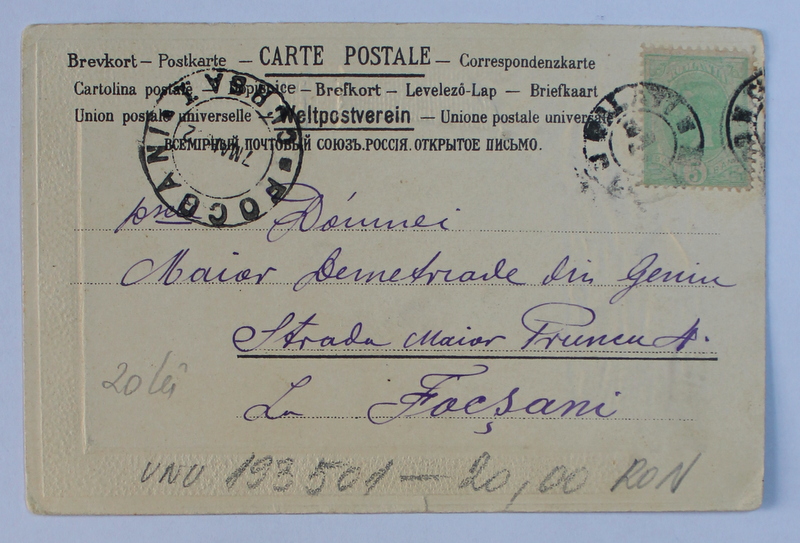 Brevkort – Postkarte – CARTE POSTALE – Correspondenzkarte
Cartolina postale – – Brefkort – Levelező-Lap – Briefkaart
Union postale universelle – Weltpostverein – Unione postale universale
ВСЕМІРНЫЙ ПОЧТОВЫЙ СОЮЗЪ. РОССІЯ. ОТКРЫТОЕ ПИСЬМО.
FOCSANI
CURSA I
7 MAI
5
Dómnei
Maior Demetriade din Geniu
Strada Maior Pruncu
La Focșani
20 lei
VNU 193501 – 20,00 RON